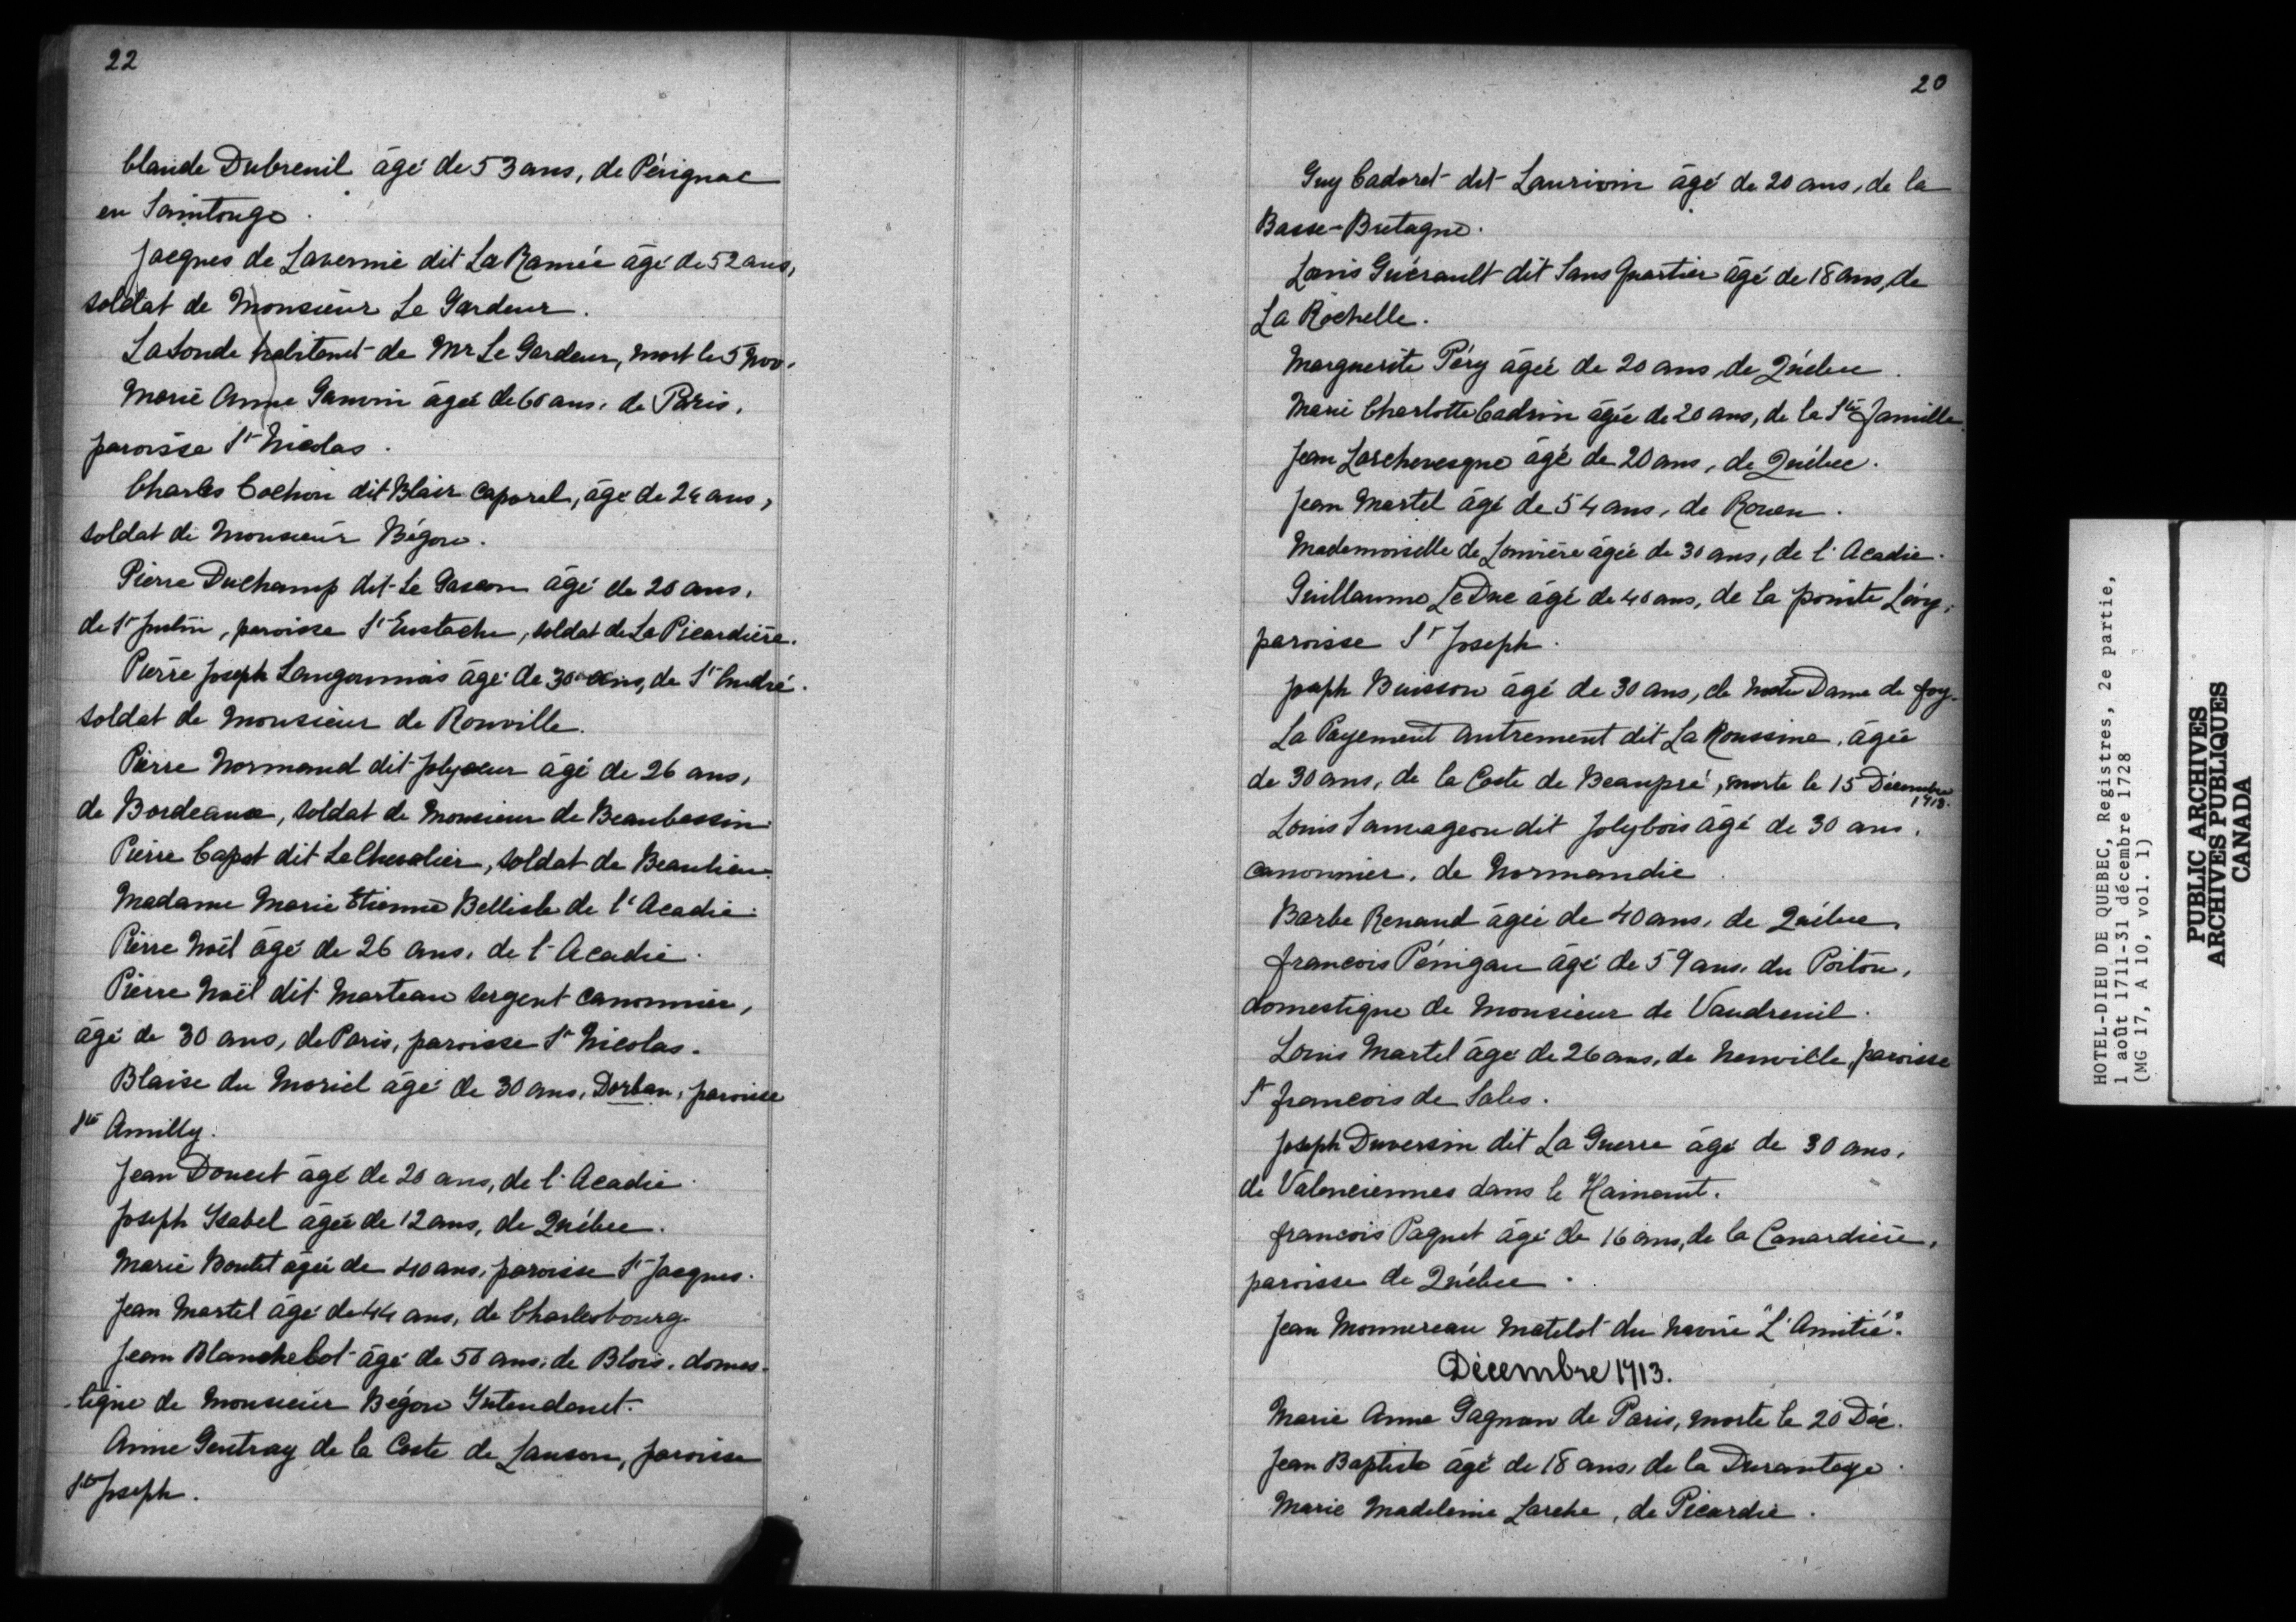 22
Claude Dubreuil âgé de 53 ans, de Pérignac
en Saintonge.
Jacques de Lavernie dit La Ramée âgé de 52 ans,
soldat de Monsieur Le Gardeur.
La Londe habitant de Mr Le Gardeur, mort le 5 Nov.
Marie Anne Ganvin âgée de 60 ans, de Paris,
paroisse St Nicolas.
Charles Cochon dit Blair caporal, âgé de 24 ans,
soldat de Monsieur Bégon.
Pierre Duchamp dit Le Gascon âgé de 20 ans,
de St Justin, paroisse St Eustache, soldat de La Picardière.
Pierre Joseph Langoumois âgé de 30 ans, de St André.
soldat de Monsieur de Rouville.
Pierre Normand dit Jolycœur âgé de 26 ans,
de Bordeaux, soldat de Monsieur de Beaubassin.
Pierre Capet dit Le Chevalier, soldat de Beaulieu.
Madame Marie Etienne Bellisle de l'Acadie.
Pierre Noël âgé de 26 ans, de l'Acadie.
Pierre Noël dit Marteau sergent canonnier,
âgé de 30 ans, de Paris, paroisse St Nicolas.
Blaise du Moriel âgé de 30 ans, Dorban, paroisse
Ste Amilly.
Jean Doucet âgé de 20 ans, de l'Acadie.
Joseph Isabel âgée de 12 ans, de Québec.
Marie Boutet âgée de 40 ans, paroisse St Jacques.
Jean Martel âgé de 44 ans, de Charlesbourg
Jean Blanchelot âgé de 50 ans, de Blois, domes-
-tique de Monsieur Bégon Intendant.
Anne Gentray de la Coste de Lauson, paroisse
St Joseph.
20
Guy Cadoret dit Laurivin âgé de 20 ans, de la
Basse-Bretagne.
Louis Guérault dit Sans Quartier âgé de 18 ans, de
La Rochelle.
Marguerite Péry âgée de 20 ans, de Québec.
Marie Charlotte Cadrin âgée de 20 ans, de la Ste Famille.
Jean Larchevesque âgé de 20 ans, de Québec.
Jean Martel âgé de 54 ans, de Rouen.
Mademoiselle de Louvière âgée de 30 ans, de l'Acadie.
Guillaume LeDuc âgé de 40 ans, de la pointe Lévy,
paroisse St Joseph.
Joseph Buisson âgé de 30 ans, de Notre Dame de foy.
La Payement autrement dit La Roussine, âgée
de 30 ans, de la Coste de Beaupré, morte le 15 Décembre
1713.
Louis Sauvageon dit Jolybois âgé de 30 ans,
canonnier, de Normandie.
Barbe Renaud âgée de 40 ans, de Québec,
francois Pénigau âgé de 59 ans, du Poitou,
domestique de Monsieur de Vaudreuil.
Louis Martel âgé de 26 ans, de Neuville, paroisse
St francois de Sales.
Joseph Duversin dit La Guerre âgé de 30 ans,
de Valenciennes dans le Hainaut.
francois Paquet âgé de 16 ans, de la Canardière,
paroisse de Québec.
Jean Monnereau matelot du navire "L'Amitié".
Décembre 1713.
Marie Anne Gagnon de Paris, morte le 20 Déc.
Jean Baptiste âgé de 18 ans, de la Durantaye.
Marie Madeleine Larche, de Picardie.
HOTEL-DIEU DE QUEBEC, Registres, 2e partie,
1 août 1711-31 décembre 1728
(MG 17, A 10, vol. 1)
PUBLIC ARCHIVES
ARCHIVES PUBLIQUES
CANADA